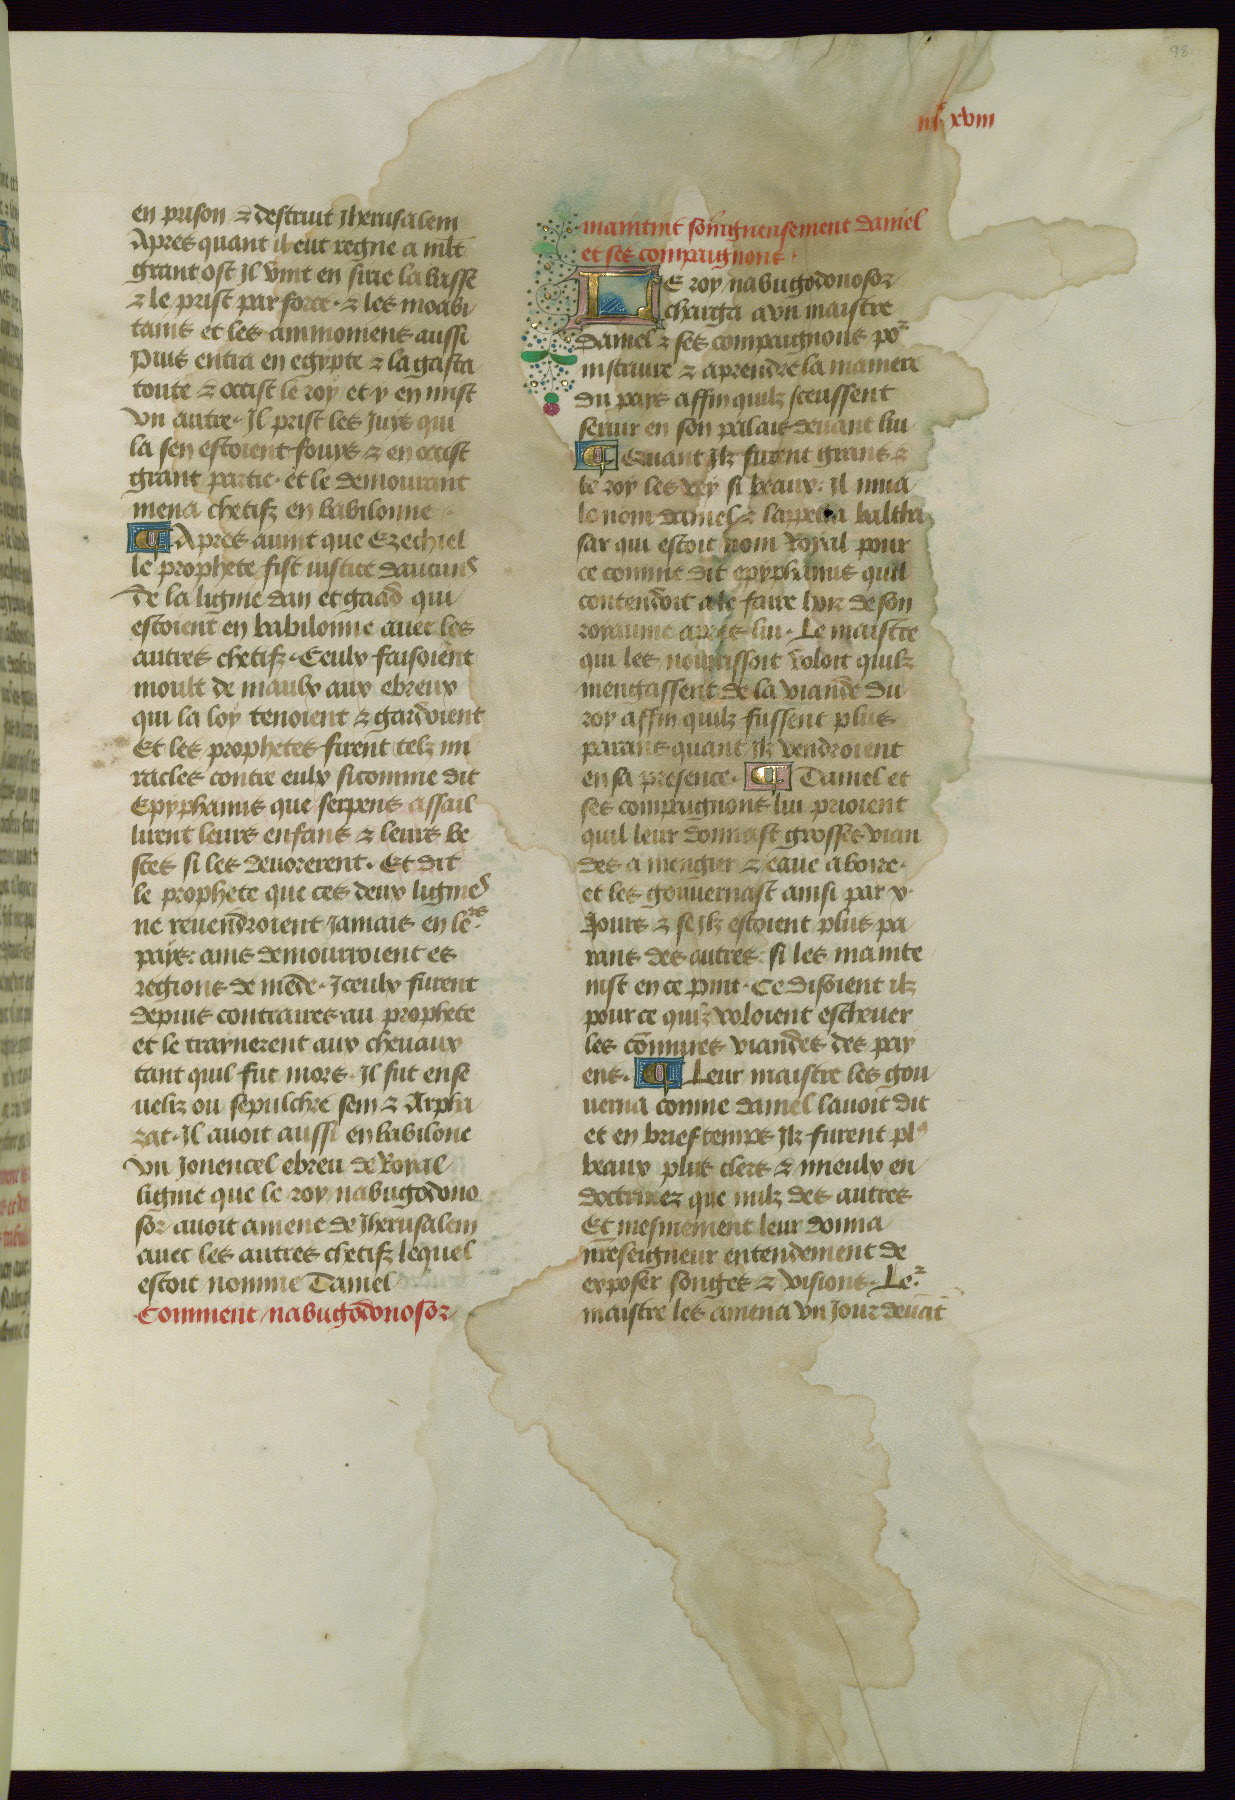 98
iiij xviii
en prison ⁊ destruit Jherusalem
Apres quant il eut regne a mlt
grant ost Jl vint en sirie la basse
⁊ le prist par force · ⁊ les moabi
tains et les ammoniens aussi
Puis entra en egypte ⁊ la gasta
toute ⁊ occist le roy et y en mist
vn autre · Jl prist les Juys qui
la sen estoient fouys ⁊ en occist
grant partie · et le demourant
mena chetifz en babilonne
¶ Apres auint que Ezechiel
le prophete fist iustice daucuns
De la lignie dan et gaad qui
estoient en babilonne auec les
autres chetifz · Ceulx faisoient
moult de maulx aux ebreux
qui la loy tenoient ⁊ gardoient
Et les prophetes firent telz mi
racles contre eulx sicomme dit
Epyphanius que serpens assail
lirent leurs enfans ⁊ leurs be
stes si les deuorerent · Et dit
le prophete que ces deux lignies
ne reuendroient Jamais en leꝛs
pays: ains demourroient es
regions de mede · Jceulx furent
depuis contraires au prophete
et le traynerent aux cheuaux
tant quil fut mors · Jl fut ense
ueliz ou sepulchre sem ⁊ Arpha
zat · Jl auoit aussi en babilone
vn Jouencel ebreu de Royal
lignie que le roy nabugodono
sor auoit amene de Jherusalem
auec les autres chetifz lequel
estoit nomme Daniel
Comment nabugodonosor
maintint songneusement daniel
et ses compaignons ·
LE roy nabugodonosor
charga a vn maistre
Daniel ⁊ ses compaignons poꝛ
instruire ⁊ aprendre la maniere
du pays affin quilz sceussent
seruir en son palais deuant lui
¶ Quant Jlz furent grans ⁊
le roy les vey si beaux · il mua
le nom daniel ⁊ lappella baltha
sar qui estoit nom Royal pour
ce comme dit epyphanius quil
contendoit a le faire hoir de son
royaume apres lui · Le maistre
qui les nourrissoit voloit quilz
mengassent de la viande du
roy affin quilz fussent plus
parans quant Jlz vendroient
en sa presence · ¶ Daniel et
ses compaignons lui prioient
quil leur donnast grosses vian
des a mengier ⁊ eaue a boire ·
et les gouuernast ainsi par x ·
Jours ⁊ se Jlz estoient plus pa
rans des autres · si les mainte
nist en ce point · Ce disoient ilz
pour ce quilz voloient escheuer
les commues viandes des pay
ens · ¶ Leur maistre les gou
uerna comme daniel lauoit dit
et en brief temps Jlz furent plꝰ
beaux plus clers ⁊ mieulx en
doctrinez que nulz des autres
Et mesmement leur donna
nr̄eseigneur entendement de
exposer songes ⁊ visions · Leꝛ
maistre les amena vn Jour deuāt